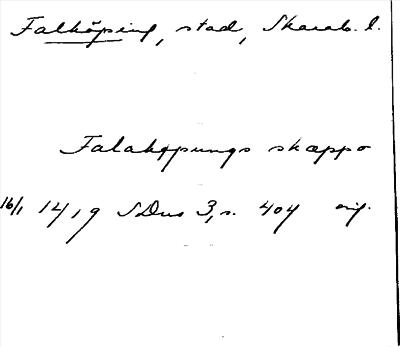 Falköping, stad, Skarab. l.
Falakøpungs skæppo
16/1 1419 SDns 3, s. 404 orig.